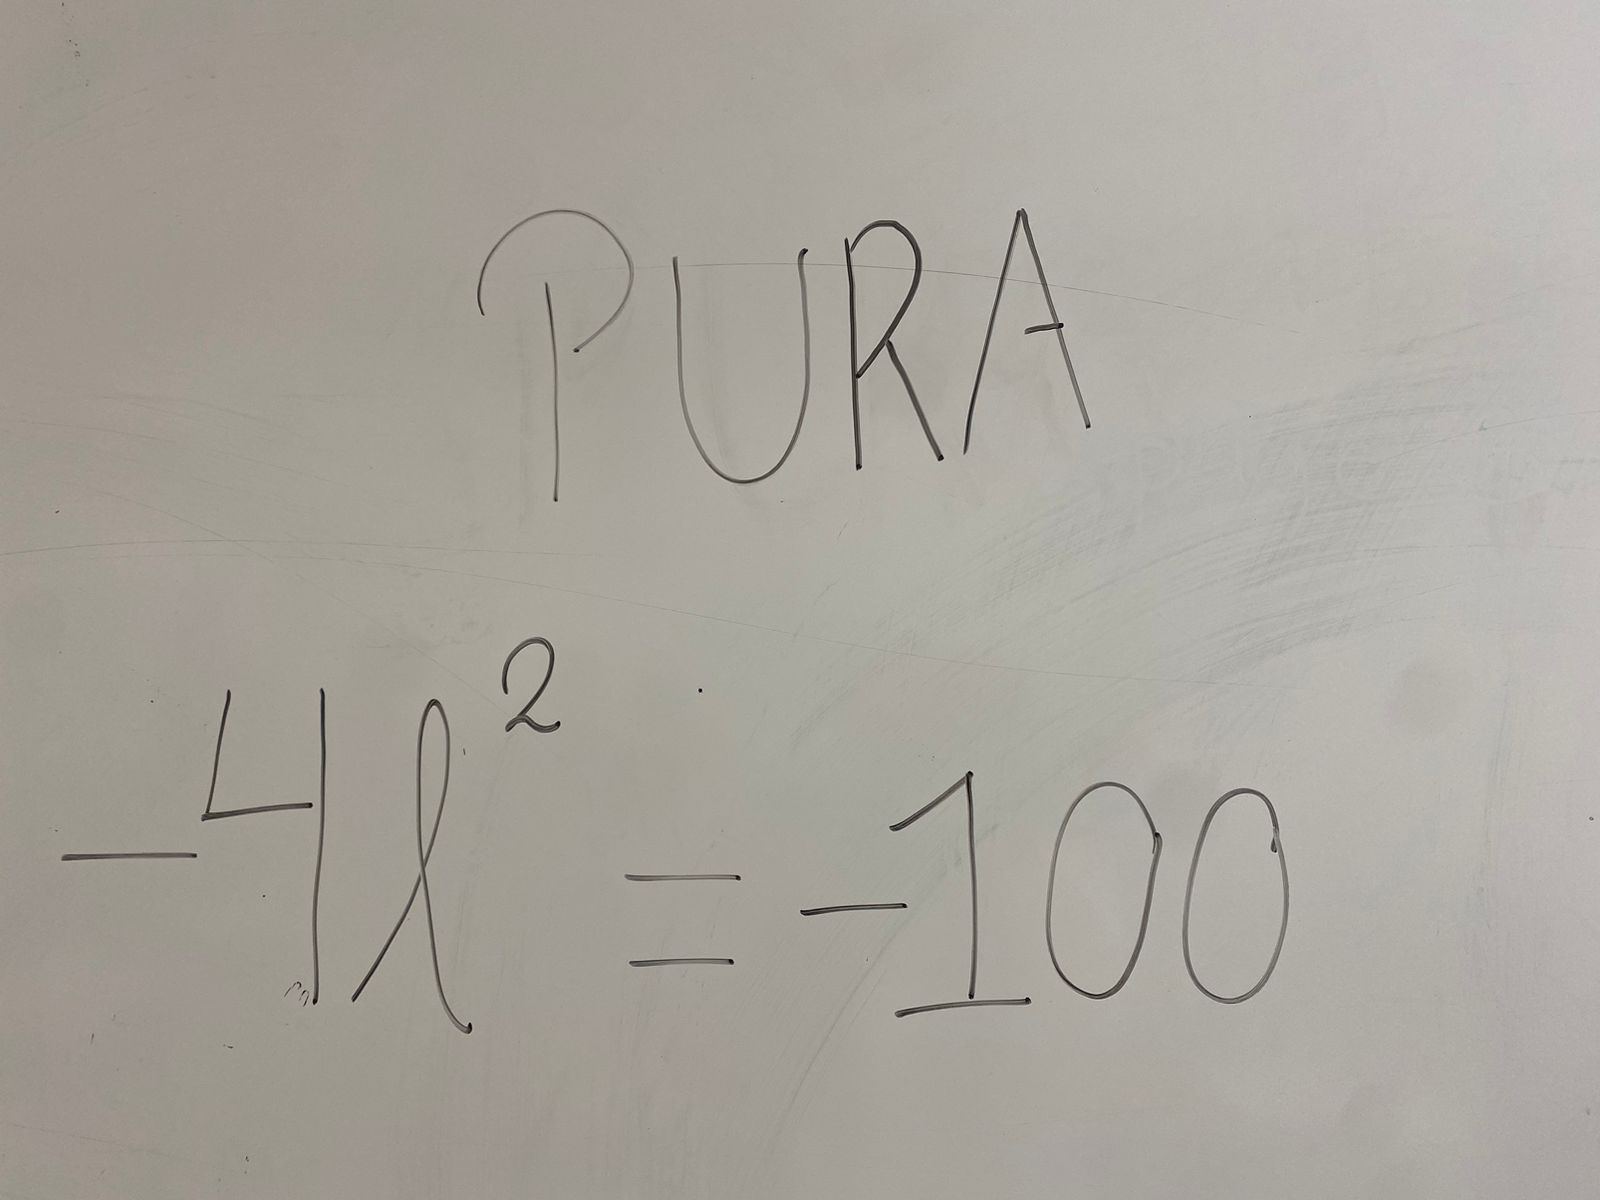 PURA
-4l² = -100